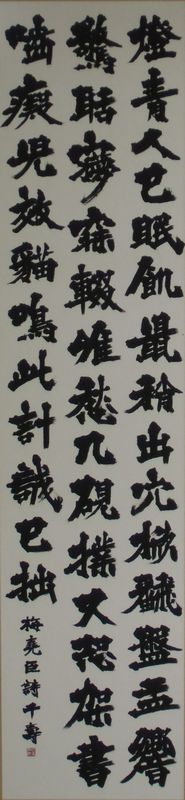 燈青人已眠飢鼠稍出穴掀飜盤盂響
驚聒夢寐輟惟愁几硯撲又恐架書
嚙癡兒效貓鳴此計誠已拙
梅堯臣詩千壽